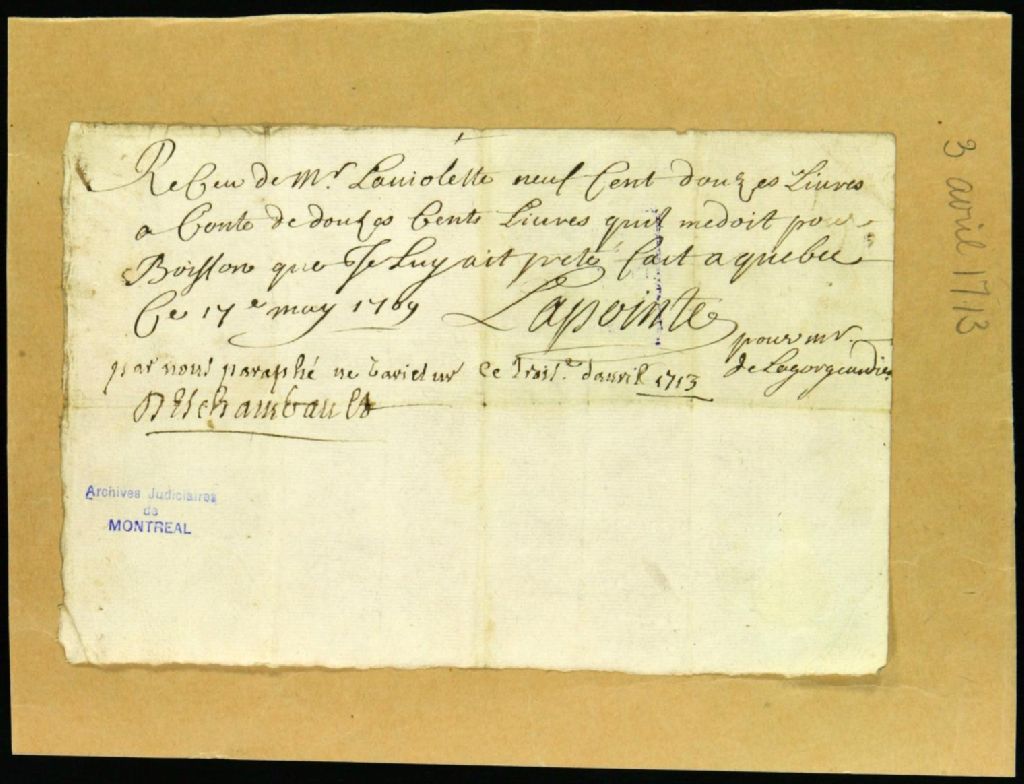 ReCeu de Mr. Lauiolette neuf Cent douzes Liures
a Conte de douzes Cents Liures quil medoit pour
Boisson que Je Luy ait preté fait a quebec
Ce 17e may 1709 Lapointe
pour mr.
de Lagorgendiere
par nous paraphé ne varietur Ce Trois.e dauril 1713
Deschambault
Archives Judiciaires
de
MONTREAL
3 avril 1713